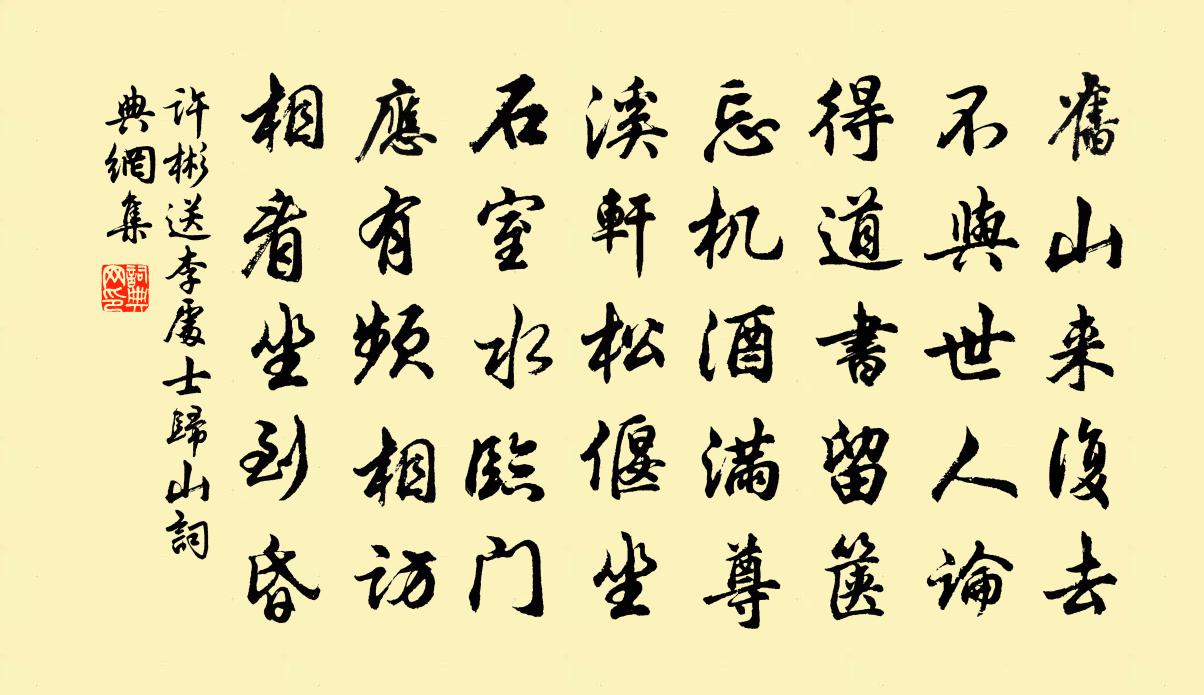 舊山来復去
不與世人論
得道書留箧
忘机酒满尊
溪軒松偃坐
石室水臨门
應有频相访
相看坐到昏
许彬送李處士歸山詞
典網集
詞典网印